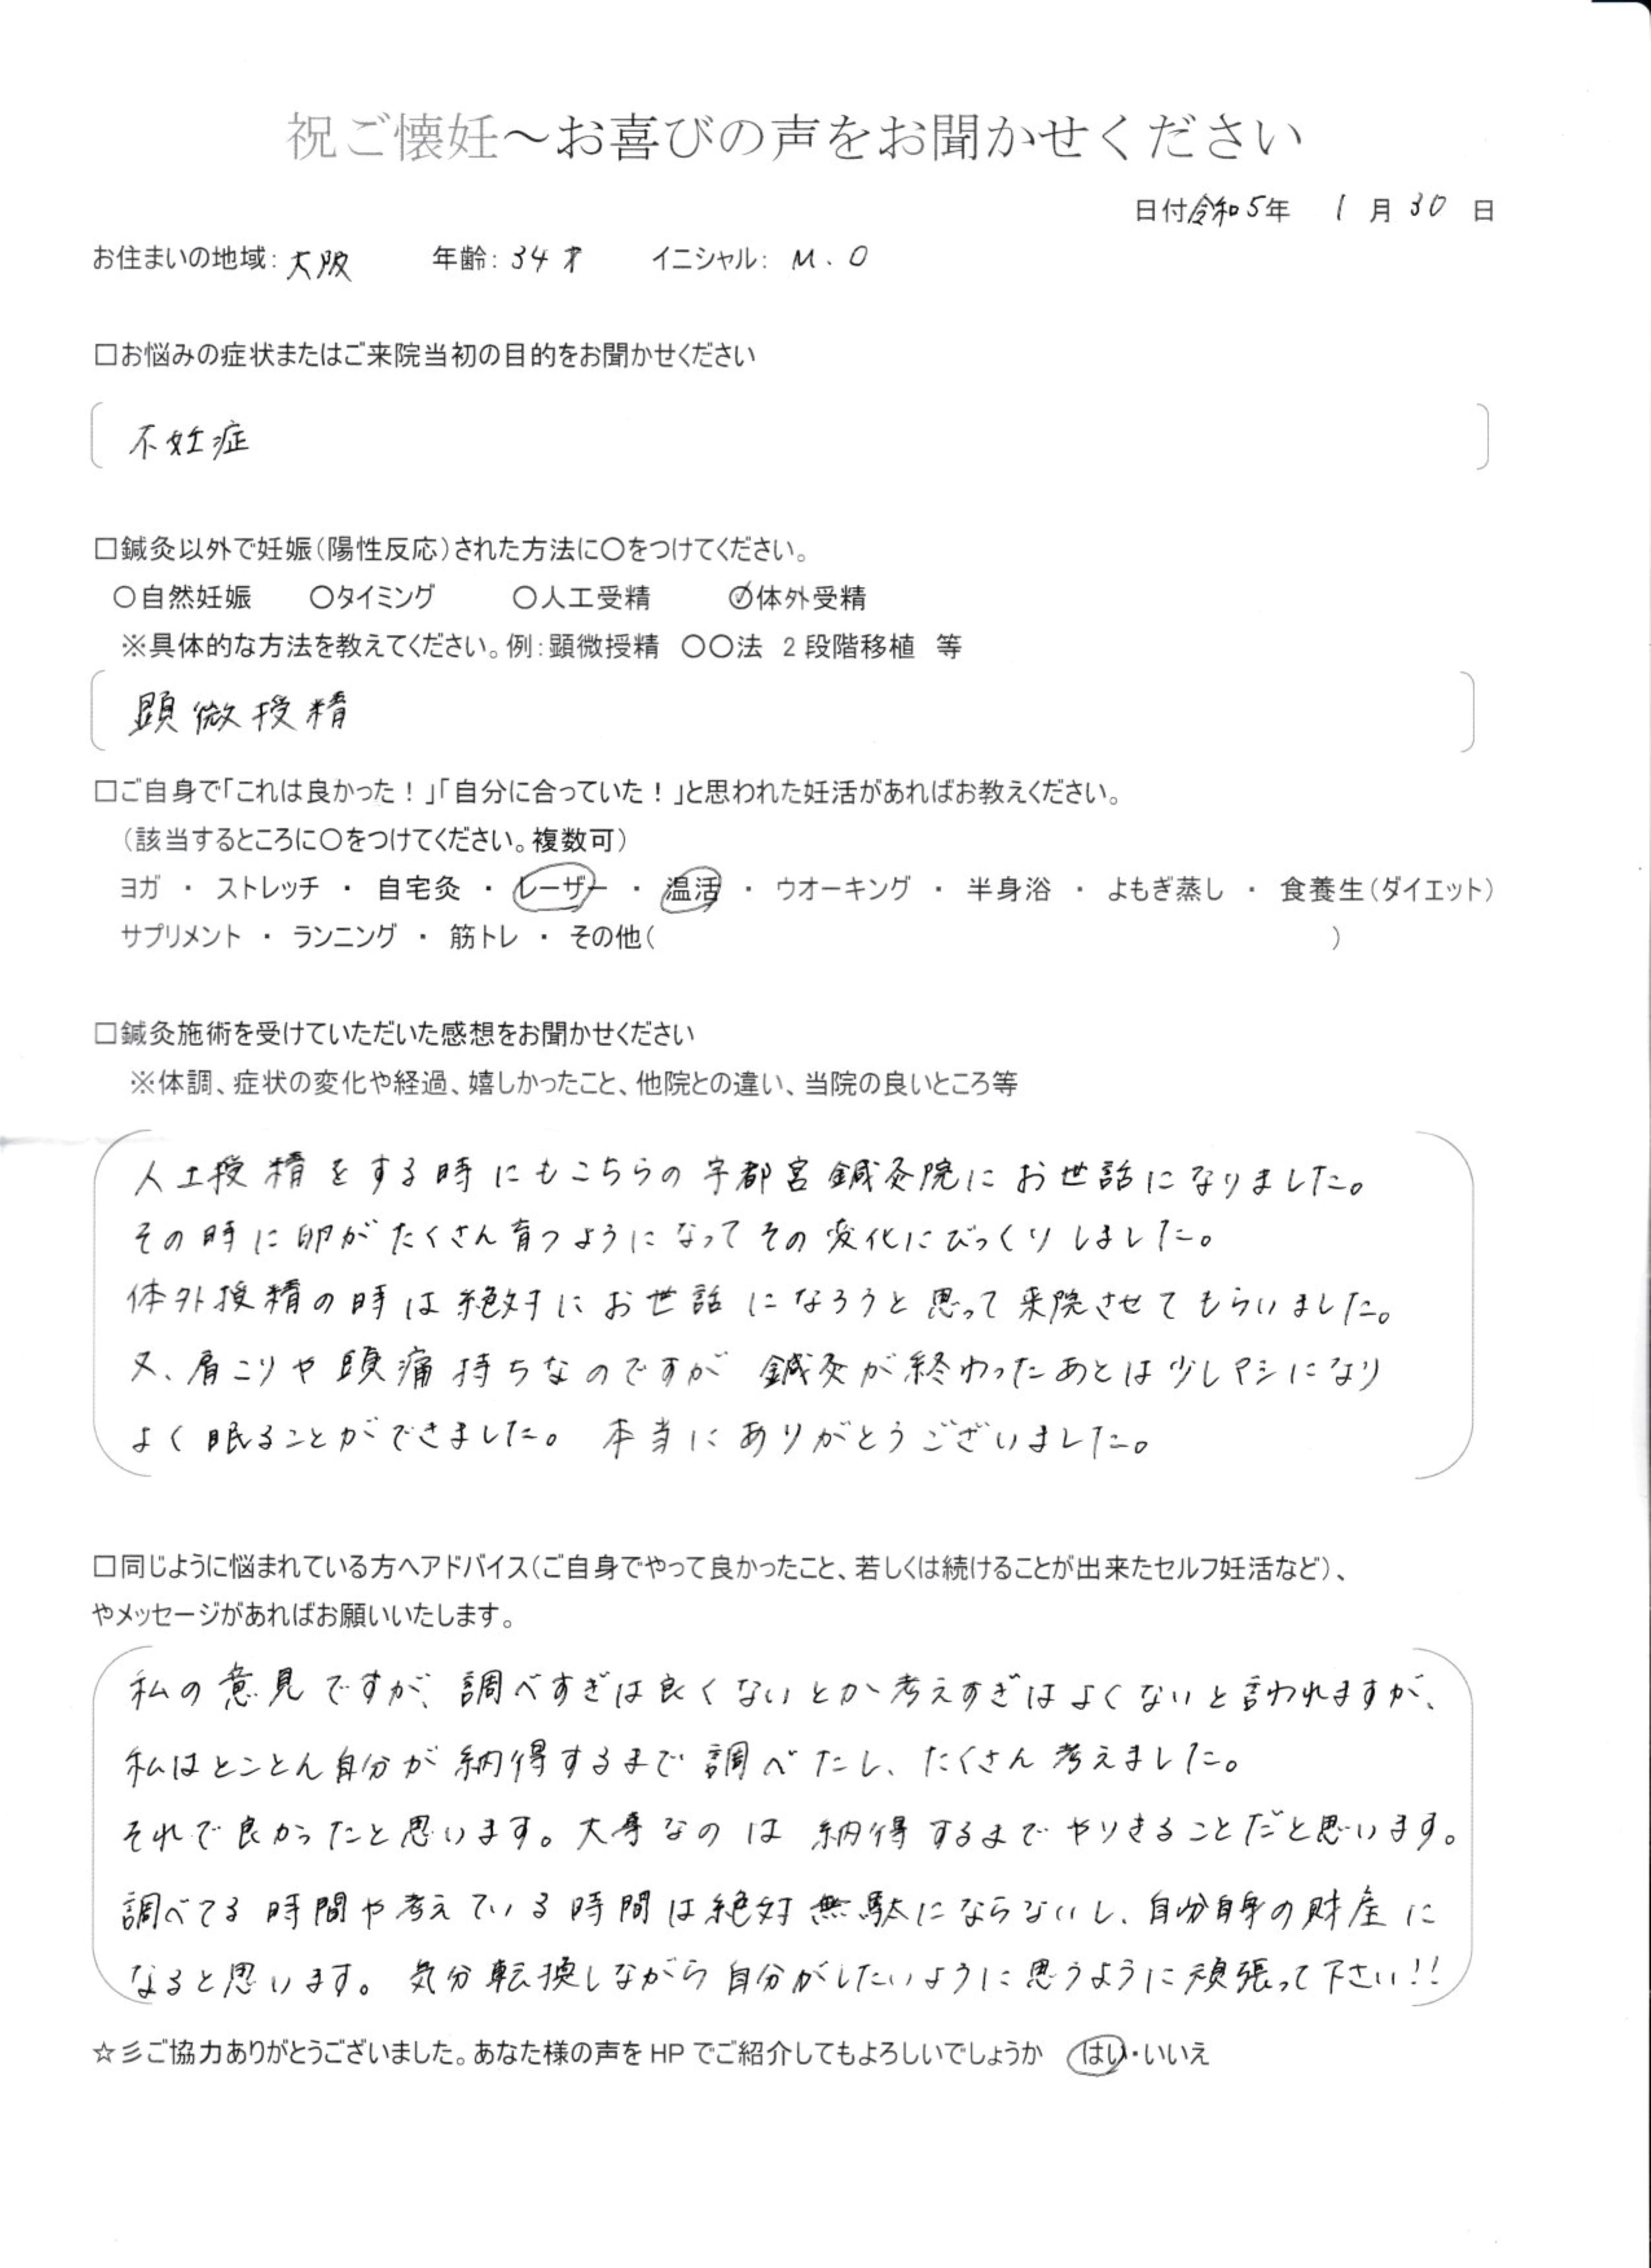 祝ご懐妊～お喜びの声をお聞かせください
日付令和5年 1月30日
お住まいの地域：大阪 年齢：34才 イニシャル：M.O
□お悩みの症状またはご来院当初の目的をお聞かせください
不妊症
□鍼灸以外で妊娠（陽性反応）された方法に○をつけてください。
○自然妊娠 ○タイミング ○人工受精 ○体外受精
※具体的な方法を教えてください。例：顕微授精 ○○法 2段階移植 等
顕微授精
□ご自身で「これは良かった！」「自分に合っていた！」と思われた妊活があればお教えください。
（該当するところに○をつけてください。複数可）
ヨガ ・ ストレッチ ・ 自宅灸 ・ レーザー ・ 温活 ・ ウオーキング ・ 半身浴 ・ よもぎ蒸し ・ 食養生（ダイエット）
サプリメント ・ ランニング ・ 筋トレ ・ その他（ ）
□鍼灸施術を受けていただいた感想をお聞かせください
※体調、症状の変化や経過、嬉しかったこと、他院との違い、当院の良いところ等
人工授精をする時にもこちらの宇都宮鍼灸院にお世話になりました。
その時に卵がたくさん育つようになってその変化にびっくりしました。
体外授精の時は絶対にお世話になろうと思って来院させてもらいました。
又、肩こりや頭痛持ちなのですが 鍼灸が終わったあとは少しマシになり
よく眠ることができました。 本当にありがとうございました。
□同じように悩まれている方へアドバイス（ご自身でやって良かったこと、若しくは続けることが出来たセルフ妊活など）、
やメッセージがあればお願いいたします。
私の意見ですが、調べすぎは良くないとか考えすぎはよくないと言われますが、
私はとことん自分が納得するまで調べたし、たくさん考えました。
それで良かったと思います。大事なのは 納得するまでやりきることだと思います。
調べてる時間や考えている時間は絶対無駄にならないし、自分自身の財産に
なると思います。 気分転換しながら自分がしたいように思うように頑張って下さい!!
☆彡ご協力ありがとうございました。あなた様の声をHPでご紹介してもよろしいでしょうか はい・いいえ